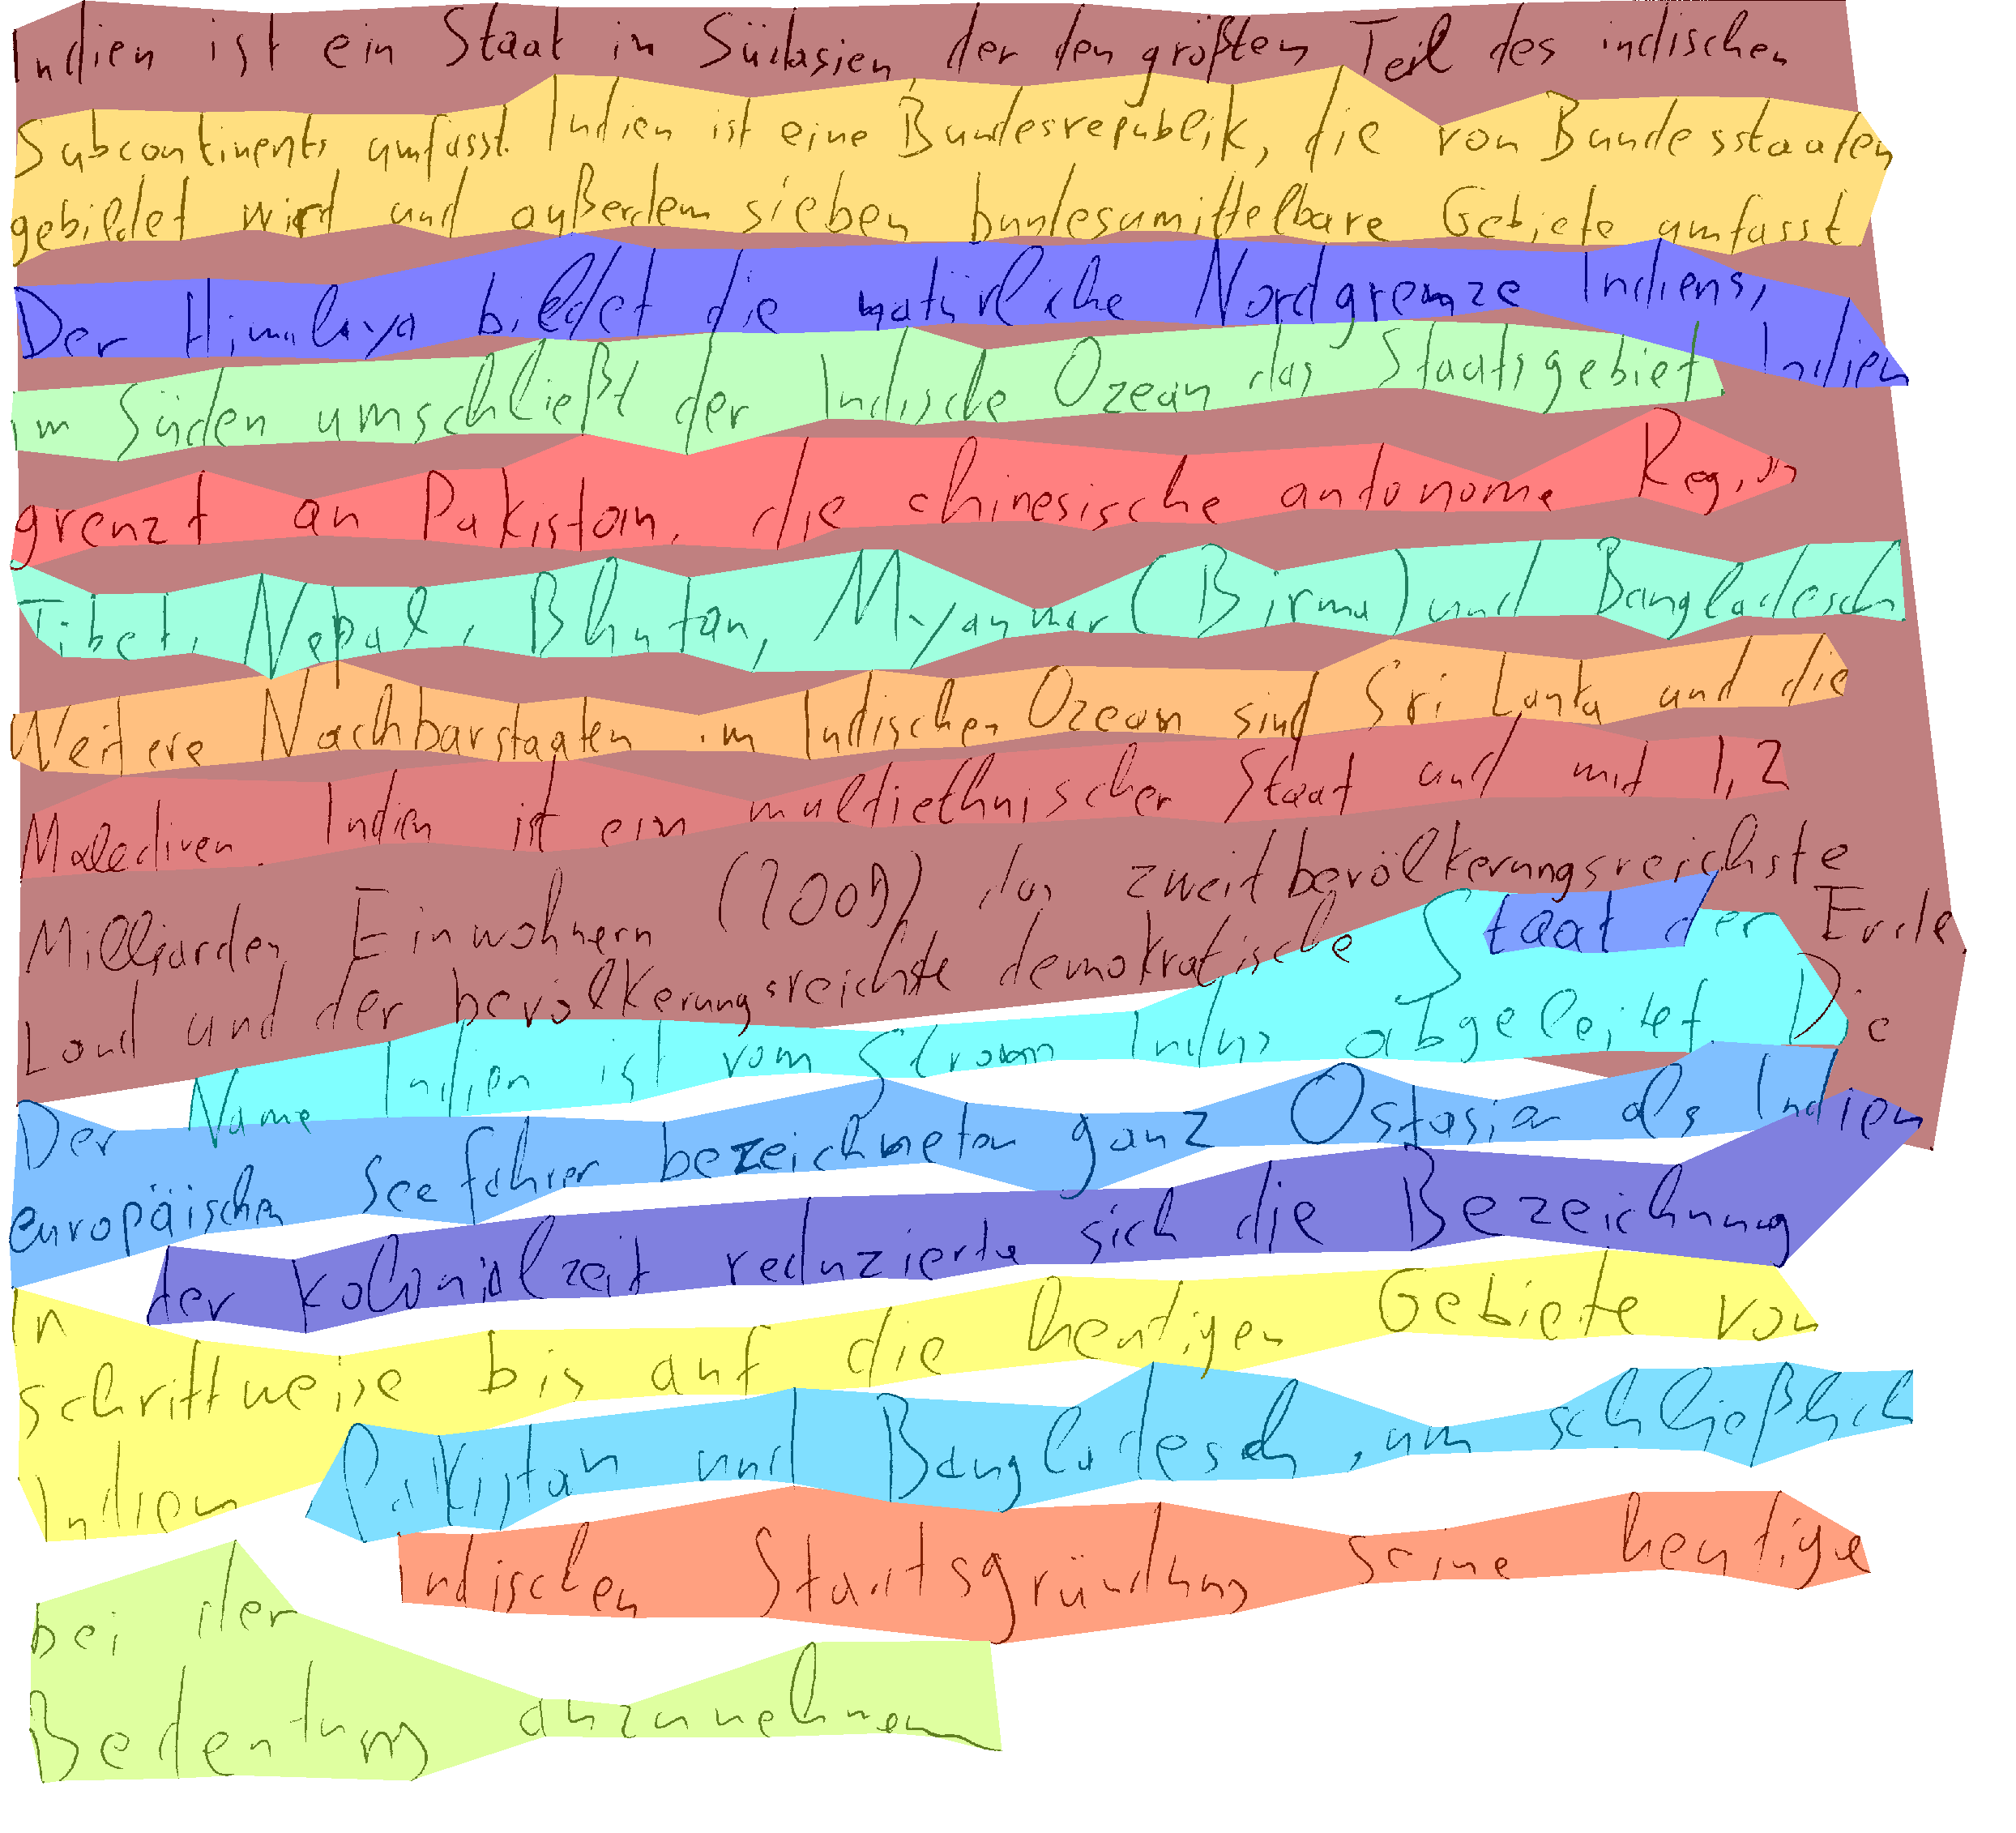 Indien ist ein Staat in Südasien, der den größten Teil des indischen
Subcontinents umfasst. Indien ist eine Bundesrepublik, die von Bundesstaaten
gebildet wird und außerdem sieben bundesumittelbare Gebiete umfasst
Der Himalaya bildet die natürliche Nordgrenze Indiens,
im Süden umschließt der Indische Ozean das Staatsgebiet Indien
grenzt an Pakistan, die chinesische autonome Region
Tibet, Nepal, Bhutan, Myanmar (Birma) und Bangladesch
Weitere Nachbarstaaten im Indischen Ozean sind Sri Lanka und die
Malediven. Indien ist ein multiethnischer Staat und mit 1,2
Milliarden Einwohnern (2009) das zweitbevölkerungsreichste
Land und der bevölkerungsreichste demokratische Staat der Erde
Der Name Indien ist vom Strom Indus abgeleitet. Die
europäischen Seefahrer bezeichneten ganz Ostasien als Indien
In der Kolonialzeit reduzierte sich die Bezeichnung
schrittweise bis auf die heutigen Gebiete von
Indien Pakistan und Bangladesch, um schließlich
bei der indischen Staatsgründung seine heutige
Bedeutung anzunehmen